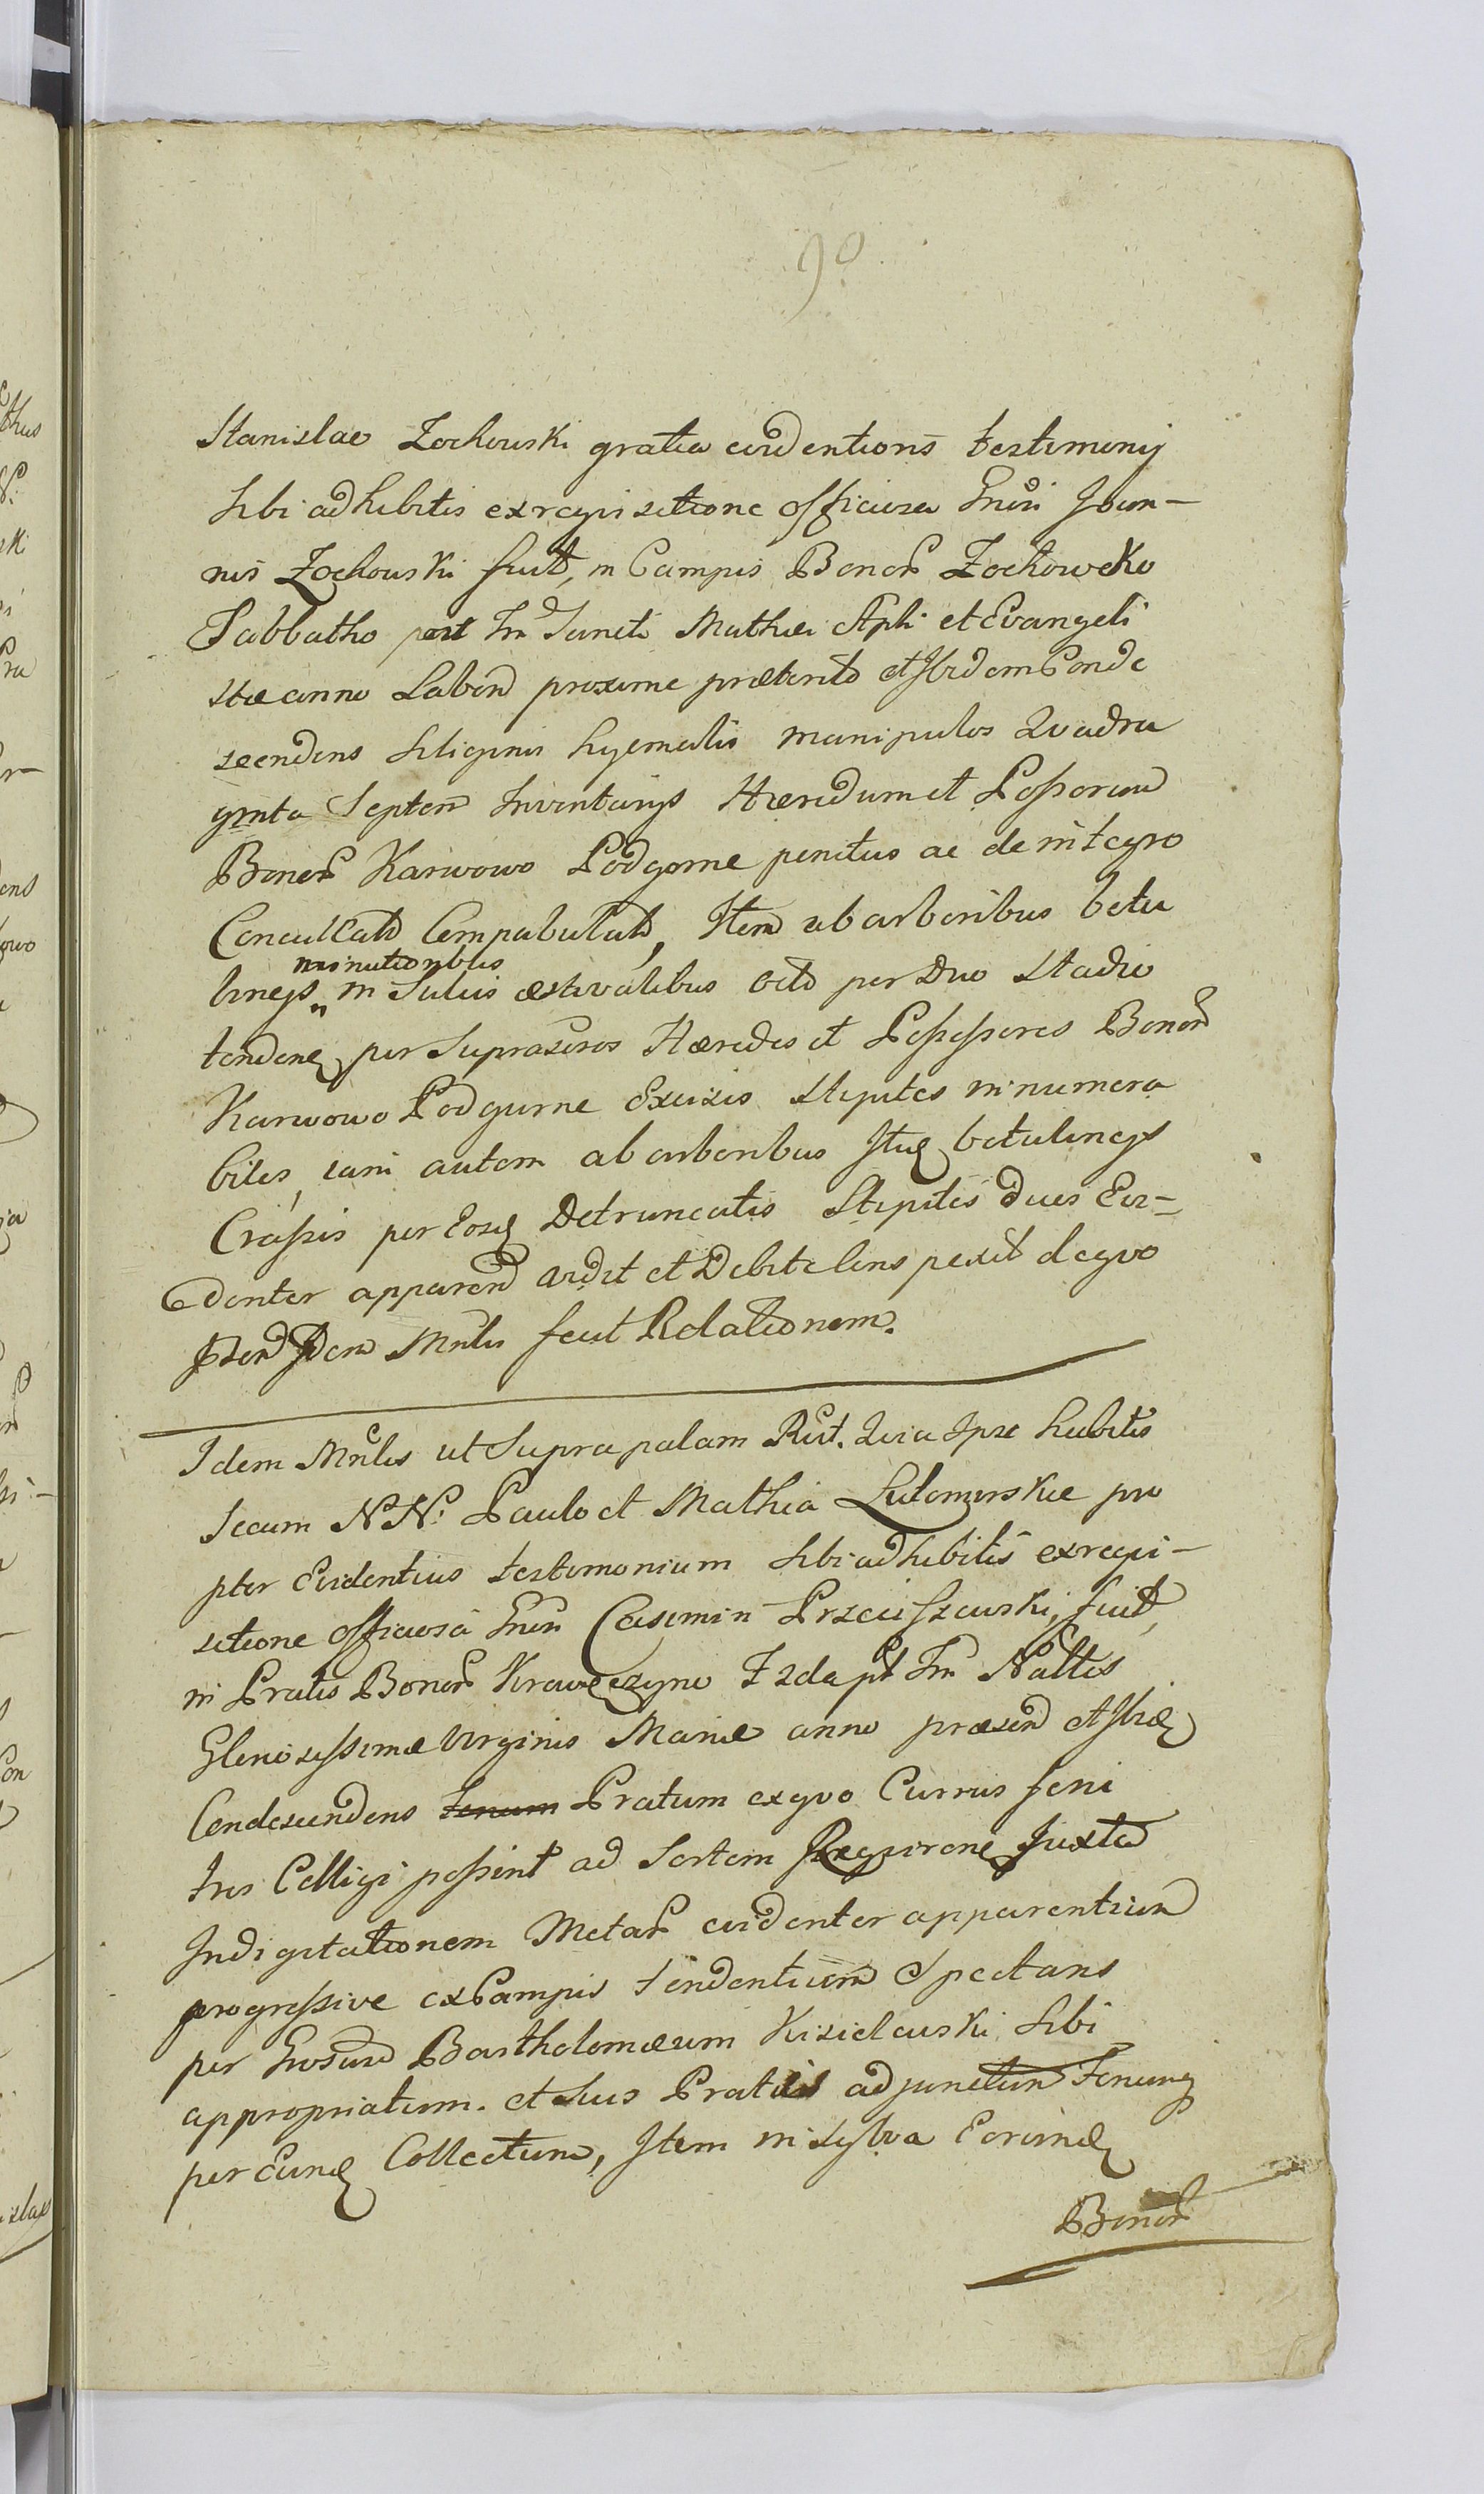 90
Stanislao Zochowski gratia evidentioris testimonij
sibi adhibitis ex reqvisitione officiosa Gnsi Joan-
nis Zochowski fuit, in Campis Bonor Zochowcko
Sabbatho post Fm Sancti Mathei Apli et Evangeli
stæ anno Laben proxime præterito et Ibidem Conde
scendens Siliginis hyemalis manipulos Qvadra
ginta Septem Inventarijs Hæredum et Possorum
Bonor Karwowo Podgorne penitus ac de integro
Conculcato Compabulato, Item ab arboribus betu
minutioribus
lineis in Siluis æstivalibus octo per Duo Stadio
tenden per Suprascros Hæredes et Possessores Bonor
Karwowo Podgurne Excisis Stipites innumera
biles, iam autem ab arboribus Itid betulineys
Crassis per Eosd Detruncatis Stipites Duos Evi-
denter apparen vidit et Debite Conspexit de qvo
Idem Mnlis fecit Relationem.
Idem Mnlis ut Supra palam Rcit. Qvia Ipse habitis
Secum NN. Paulo et Mathia Lutomirskie pro
pter Evidentius testimonium Sibi adhibitis ex reqvi-
sitione officiosa Gnsi Casimiri Przeciszewski, fuit,
in Pratis Bonor Krawęczyno F 2da pt Fm Naltis
Gloriosissimæ Virginis Mariæ anno præsen et Ibid
Condescendens Fenum Pratum ex qvo Currus feni
tres Colligi possint ad Sortem Juxta
Indigitationem Metar evidenter apparentium
progressive ex Campis tendentium Spectans
per Bartholomæum Kisielewski Sibi
appropriatum. et Suis Pratis adjunctum Fenumq
per Eund Collectum, Item in Sylva Eorund
Bonor